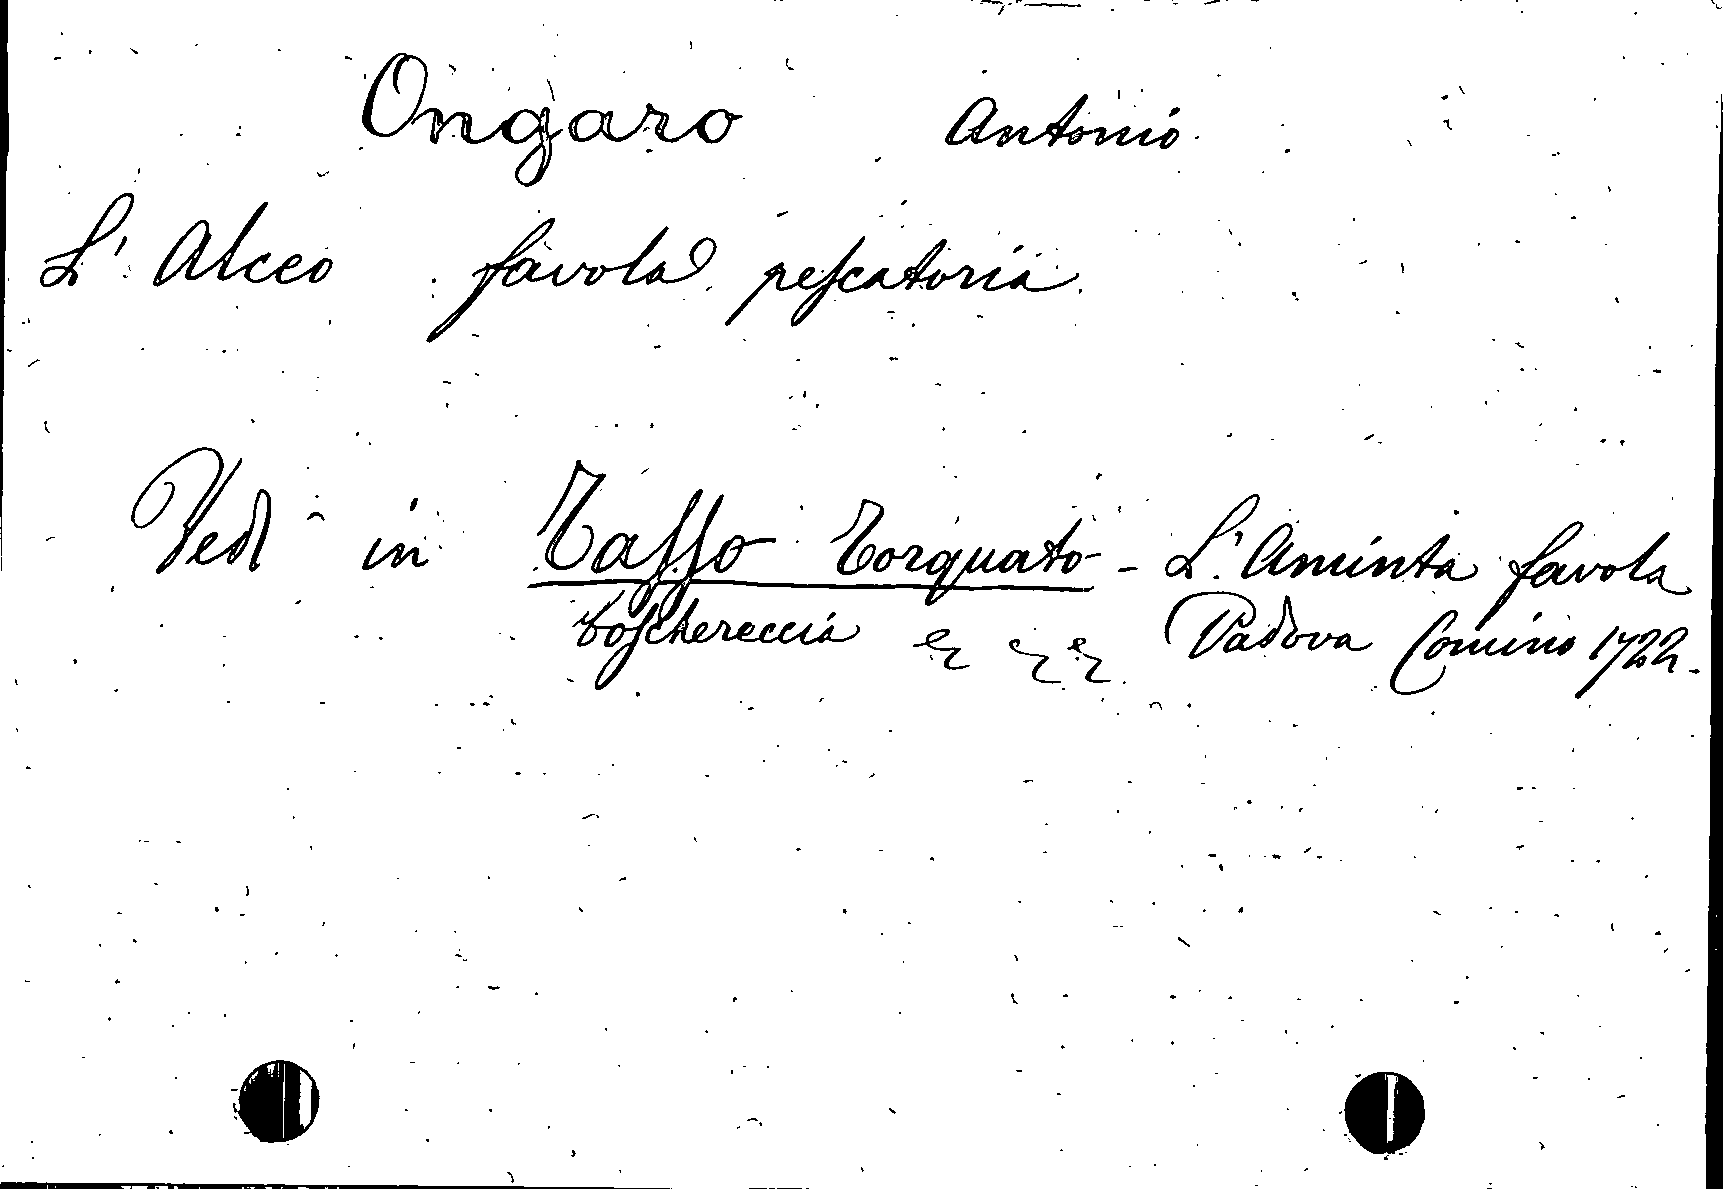 Ongaro Antonio
L'Alceo favola peſcatoria
Vedi in Taſſo Torquato - L'Aminta favola
boſchereccia & && Padova Comino 1722.